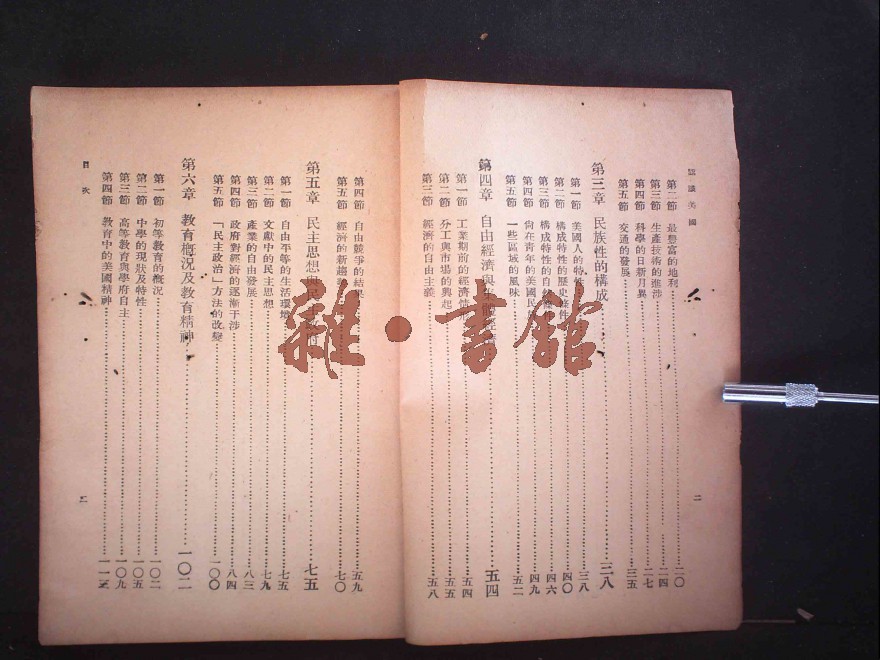 認識美國
第二節 最豐富的地利 二〇
第三節 生產技術的進涉 二四
第四節 科學的日新月異 二七
第五節 交通的發展 三五
第三章 民族性的構成 三八
第一節 美國人的特性 三八
第二節 構成特性的歷史條件 四〇
第三節 構成特性的自然 四六
第四節 尚在青年的美國民族 四九
第五節 一些區域的風味 五二
第四章 自由經濟與 五四
第一節 工業期前的經濟 五四
第二節 分工與市場的興起 五五
第三節 經濟的自由主義 五八
二
第四節 自由競爭的結果 五九
第五節 經濟的新趨 七〇
第五章 民主思想與民主政治 七五
第一節 自由平等的生活環境 七五
第二節 文獻中的民主思想 七九
第三節 產業的自由發展 八三
第四節 政府對經濟的逐漸干涉 八四
第五節 「民主政治」方法的改變 一〇〇
第六章 教育概況及教育精神 一〇二
第一節 初等教育的概況 一〇二
第二節 中學的現狀及特性 一〇五
第三節 高等教育與學府自主 一〇九
第四節 教育中的美國精神 一一
目次
雜·書館